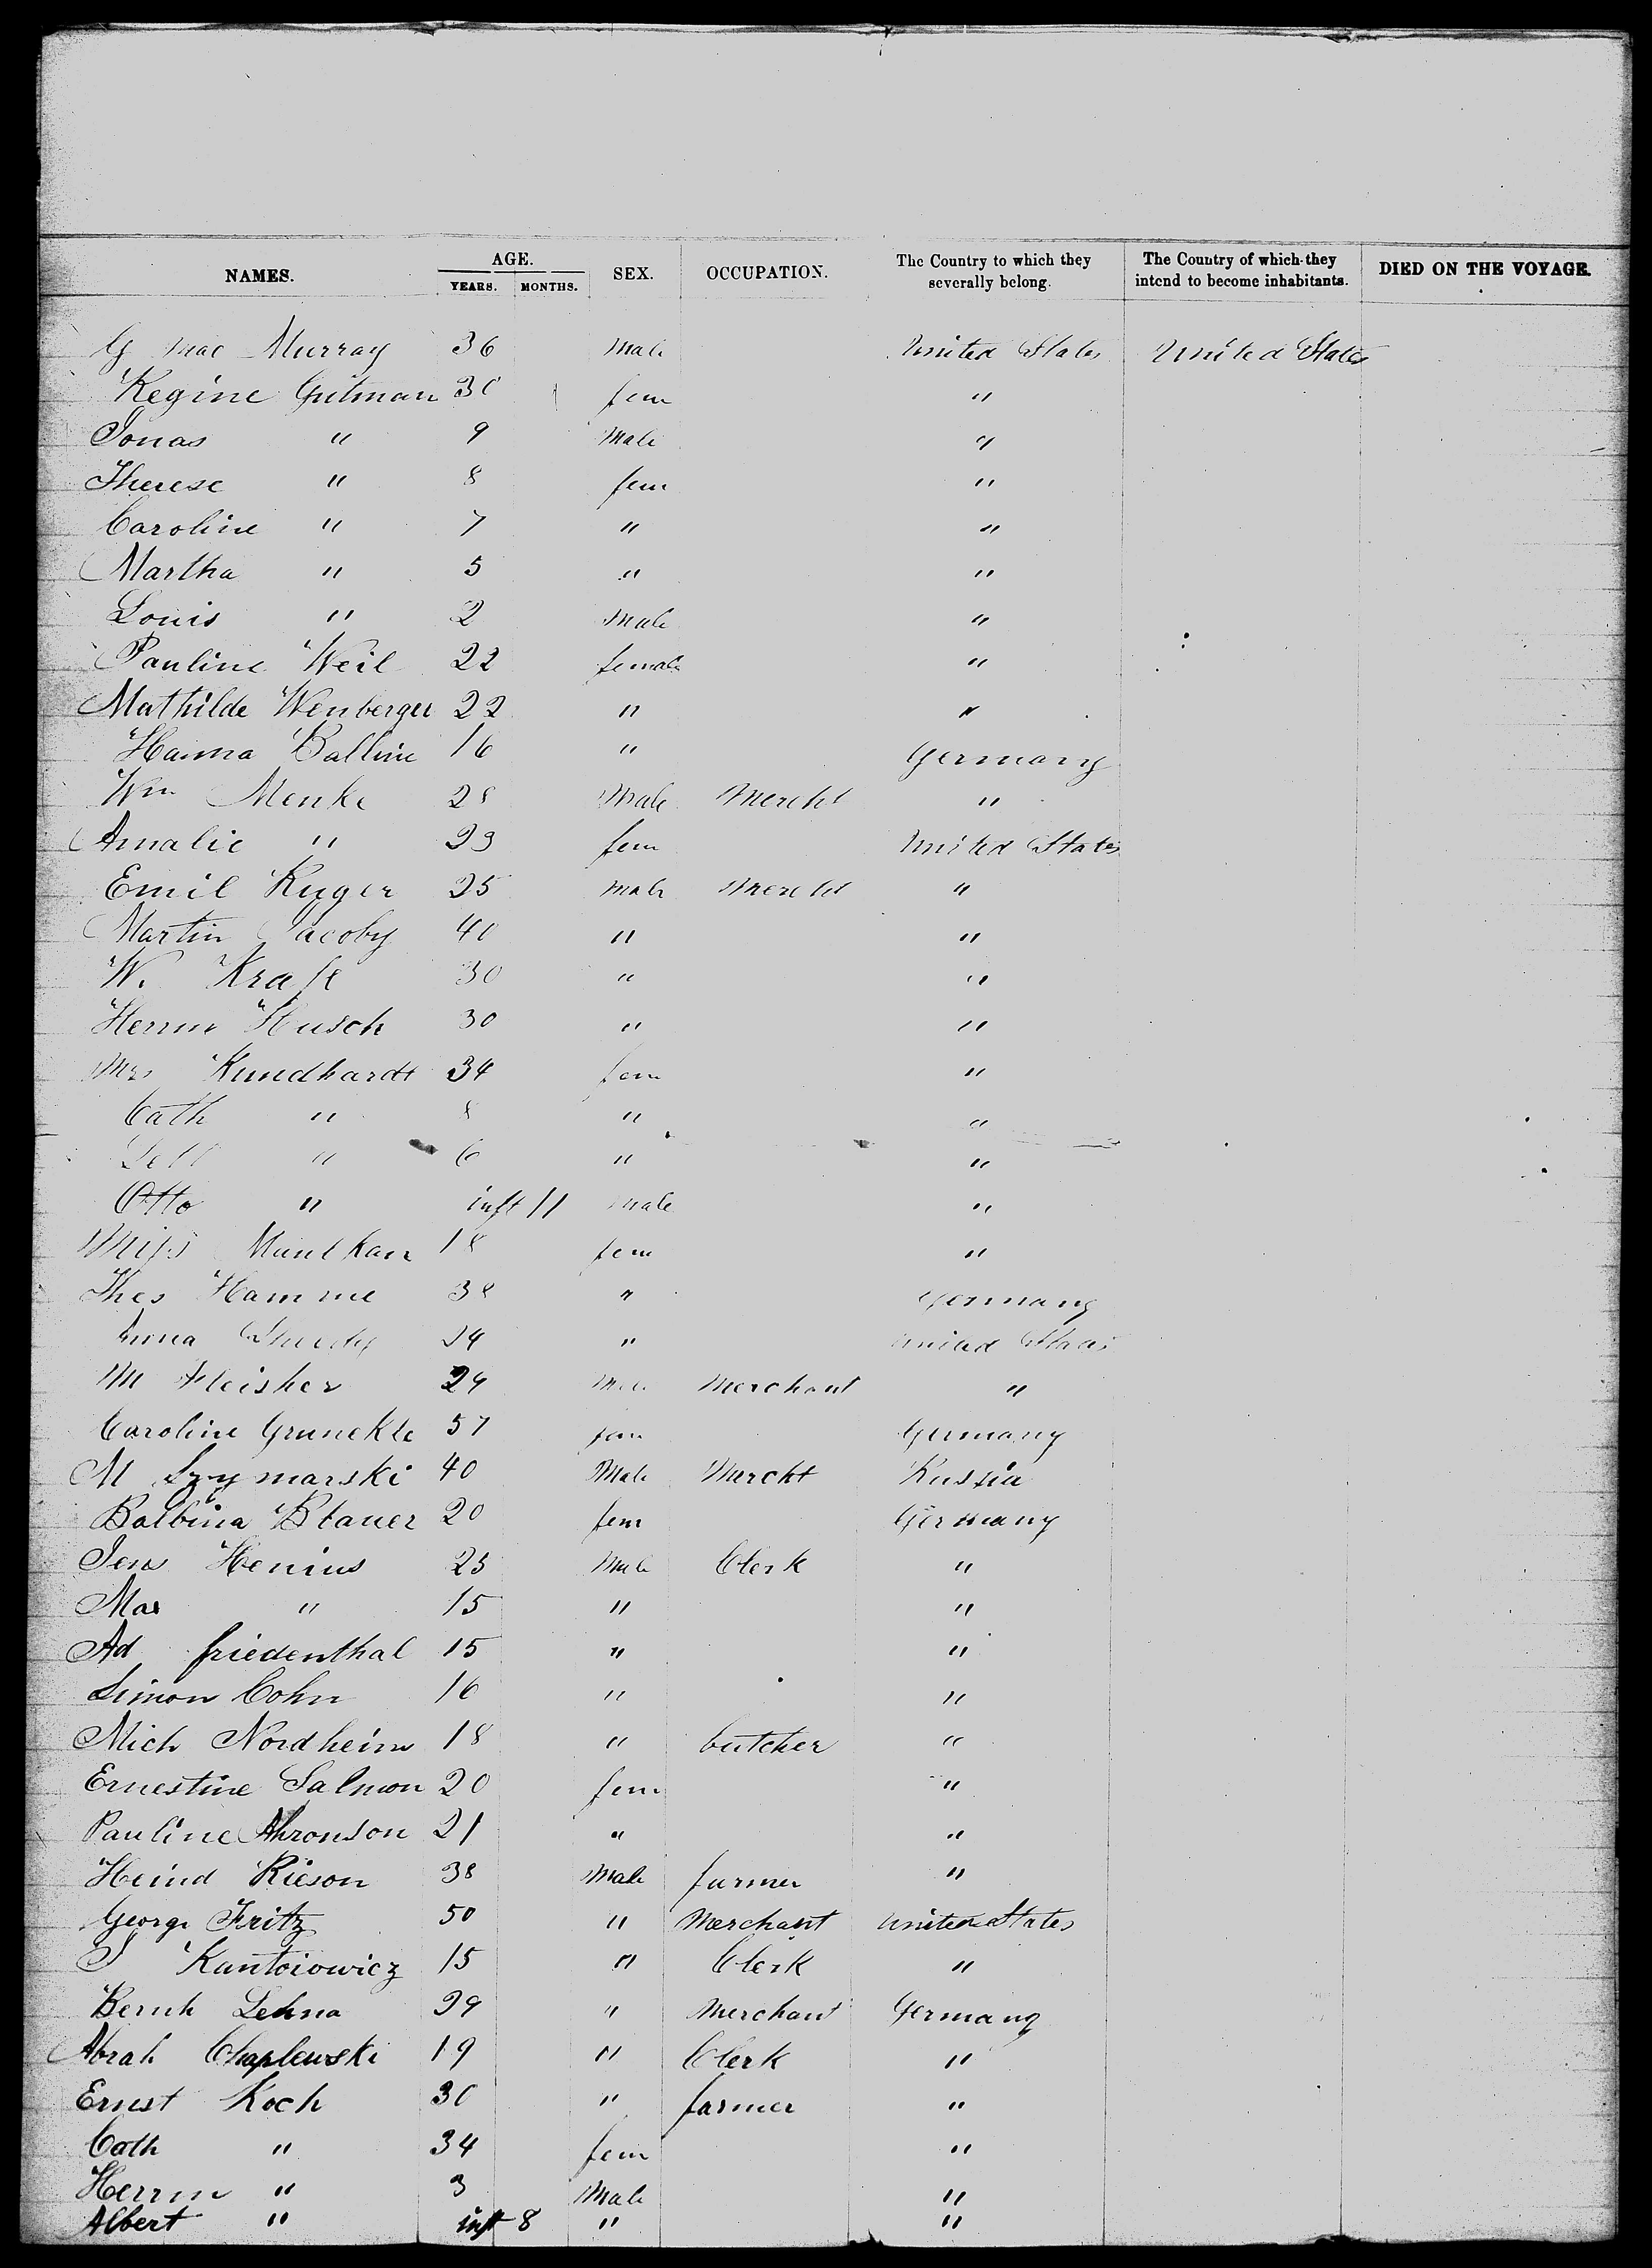 NAMES. AGE. YEARS. MONTHS. SEX. OCCUPATION. The Country to which they severally belong. The Country of which they intend to become inhabitants. DIED ON THE VOYAGE.
G Mac Murray 36 Male United States United States
Regine Gutman 30 fem "
Jonas " 9 Male "
Therese " 8 fem "
Caroline " 7 " "
Martha " 5 " "
Louis " 2 Male "
Pauline Weil 22 female "
Mathilde Wenberger 22 " "
Hanna Ballin 16 " Germany
Wm Menke 28 Male Mercht "
Amalie " 23 fem United States
Emil Ruger 25 Male Mercht "
Martin Jacoby 40 " "
W. Kraft 30 " "
Herrm Husch 30 " "
Mrs Kundhardt 34 fem "
Cath " 8 " "
" 6 " "
Otto " inft 11 Male "
Miss 18 fem "
Thes Hamme 38 " Germany
Anna 24 " United States
M Fleisher 24 Male Merchant "
Caroline Grunekle 57 fem Germany
M Szymarski 40 Male Mercht Russia
Balbina Blauer 20 fem Germany
Jens Henius 23 Male Clerk "
Max " 15 " "
Ad friedenthal 15 " "
Simon Cohn 16 " "
Mich Nordheim 18 " butcher "
Ernestine Salmon 20 fem "
Pauline Ahronson 21 " "
Heind Rieson 38 Male farmer "
George Fritz 50 " Merchant United States
S Kantoiowicz 15 " Clerk "
Bernh Lehna 29 " Merchant Germany
Abrah Chaplewski 19 " Clerk "
Ernest Koch 30 " farmer "
Cath " 34 fem "
Herrm " 3 Male "
Albert " inft 8 " "